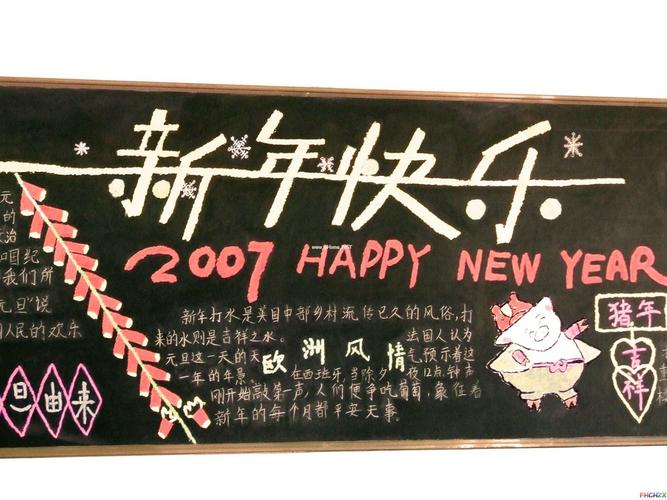 新年快乐
2007 HAPPY NEW YEAR
元
的
政治
和国纪
我们所
元旦"说
国人民的欢乐
旦由来
新年打水是英国中部乡村流传已久的风俗,打
来的水则是吉祥之水。 法国人认为
元旦这一天的天 气预示着这
欧洲风情
一年的年景 在西班牙,当除夕夜12点钟声
刚开始敲第一声,人们便争吃葡萄,象征着
新年的每个月都平安无事。
猪年
吉
祥
FHCHZX